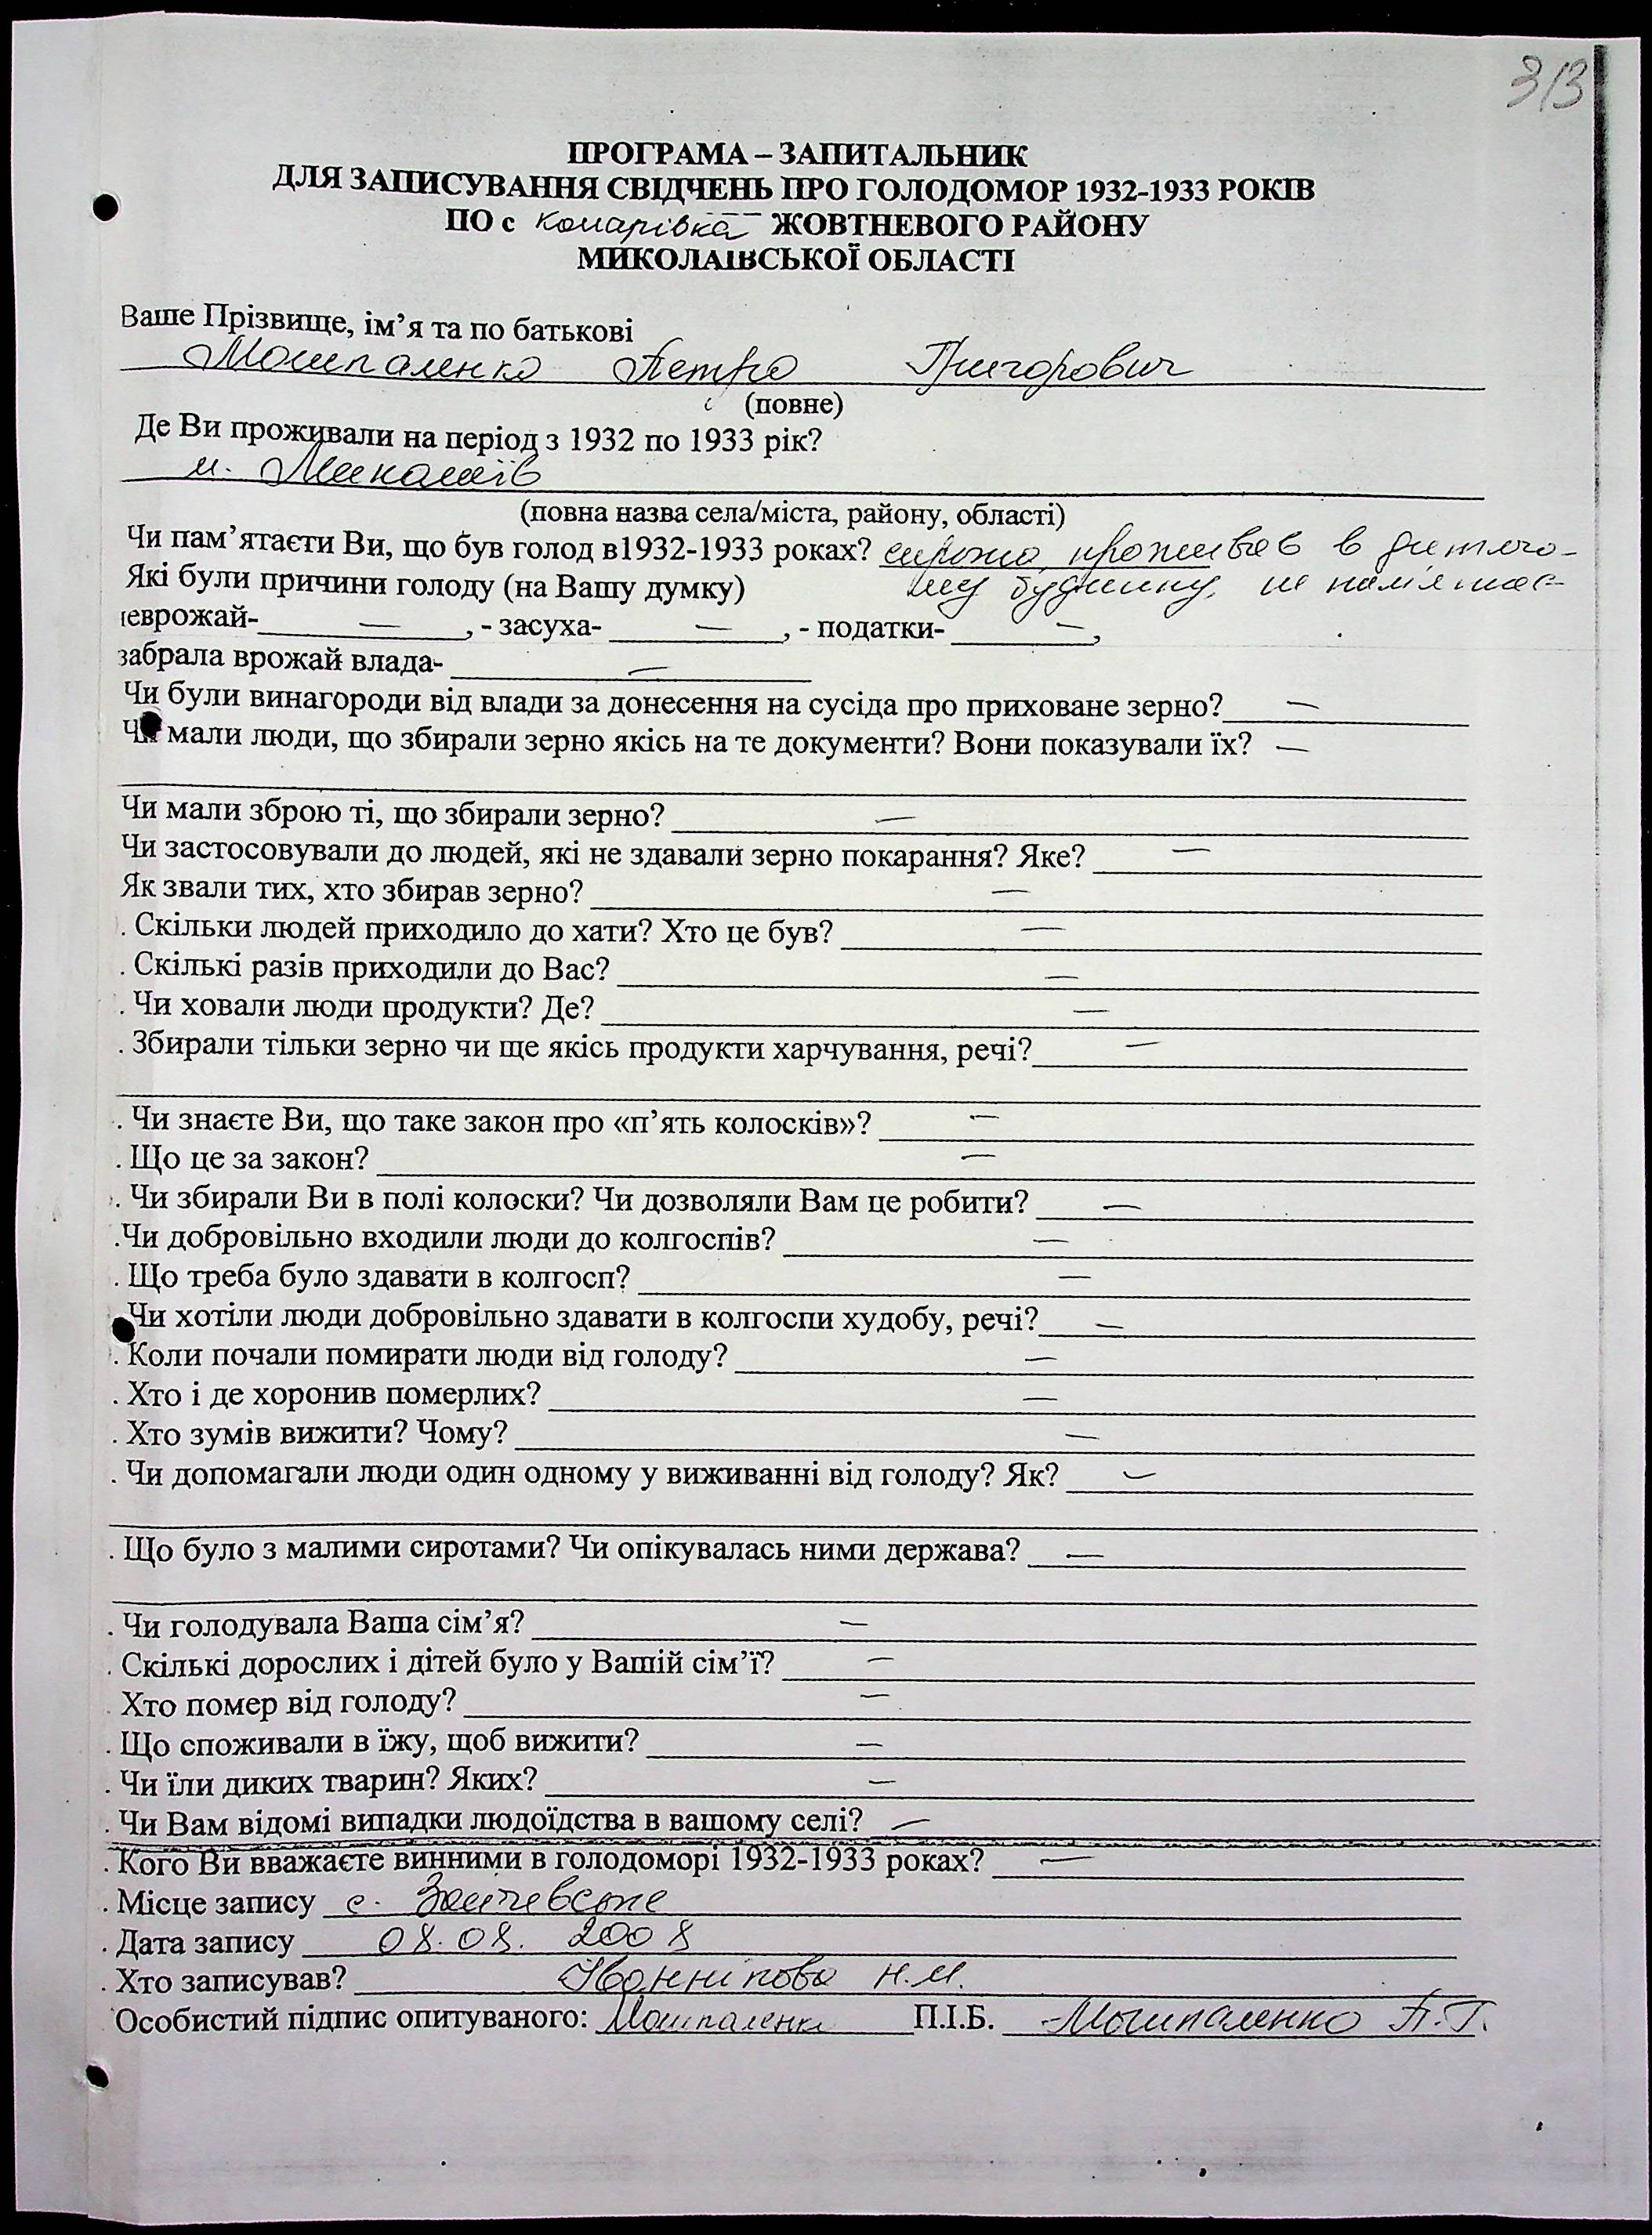 313
ПРОГРАМА – ЗАПИТАЛЬНИК
ДЛЯ ЗАПИСУВАННЯ СВІДЧЕНЬ ПРО ГОЛОДОМОР 1932-1933 РОКІВ
ПО с Комарівка ЖОВТНЕВОГО РАЙОНУ
МИКОЛАЇВСЬКОЇ ОБЛАСТІ
Ваше Прізвище, ім’я та по батькові
Мошпаленко Петро Григорович
(повне)
Де Ви проживали на період з 1932 по 1933 рік?
м. Миколаїв
(повна назва села/міста, району, області)
Чи пам’ятаєти Ви, що був голод в1932-1933 роках? сирота, проживав в дитячо-
Які були причини голоду (на Вашу думку) му будинку, не пам'ятає
неврожай- — , - засуха- — , - податки- — ,
забрала врожай влада- —
Чи були винагороди від влади за донесення на сусіда про приховане зерно? —
Чи мали люди, що збирали зерно якісь на те документи? Вони показували їх? —
Чи мали зброю ті, що збирали зерно? —
Чи застосовували до людей, які не здавали зерно покарання? Яке? —
Як звали тих, хто збирав зерно? —
. Скільки людей приходило до хати? Хто це був? —
. Скількі разів приходили до Вас? —
. Чи ховали люди продукти? Де? —
. Збирали тільки зерно чи ще якісь продукти харчування, речі? —
. Чи знаєте Ви, що таке закон про «п’ять колосків»? —
. Що це за закон? —
. Чи збирали Ви в полі колоски? Чи дозволяли Вам це робити? —
.Чи добровільно входили люди до колгоспів? —
. Що треба було здавати в колгосп? —
Чи хотіли люди добровільно здавати в колгоспи худобу, речі? —
. Коли почали помирати люди від голоду? —
. Хто і де хоронив померлих? —
. Хто зумів вижити? Чому? —
. Чи допомагали люди один одному у виживанні від голоду? Як? —
. Що було з малими сиротами? Чи опікувалась ними держава? —
. Чи голодувала Ваша сім’я? —
. Скількі дорослих і дітей було у Вашій сім’ї? —
. Хто помер від голоду? —
. Що споживали в їжу, щоб вижити? —
. Чи їли диких тварин? Яких? —
. Чи Вам відомі випадки людоїдства в вашому селі? —
. Кого Ви вважаєте винними в голодоморі 1932-1933 роках? —
. Місце запису с. Зайчевське
. Дата запису 08.08. 2008
. Хто записував? Н.М.
Особистий підпис опитуваного: Мошпаленко П.І.Б. Мошпаленко П.Г.